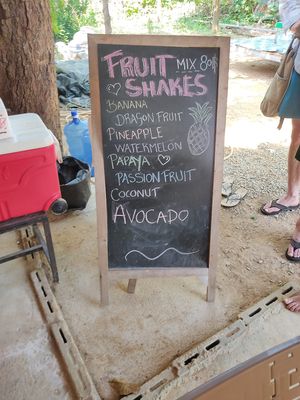 FRUIT MIX 80฿
SHAKES
BANANA
DRAGON FRUIT
PINEAPPLE
WATERMELON
PAPAYA
PASSION FRUIT
COCONUT
AVOCADO